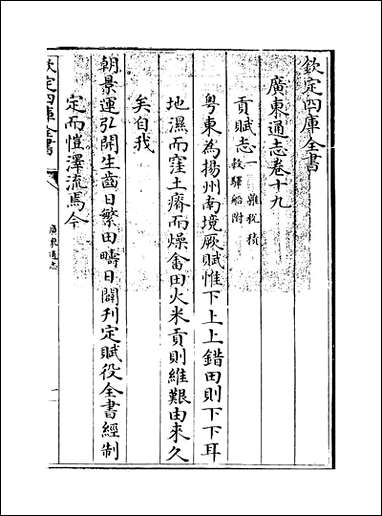 欽定四庫全書
廣東通志卷十九
貢賦志一 雜稅 積穀 驛船附
粤東為揚州南境厥賦惟下上上錯田則下下耳
地濕而窪土瘠而燥畬田火米貢則維艱由來久
矣自我
朝景運弘開生齒日繁田疇日闢刋定賦役全書經制
定而愷澤流焉今
欽定四庫全書
廣東通志
一